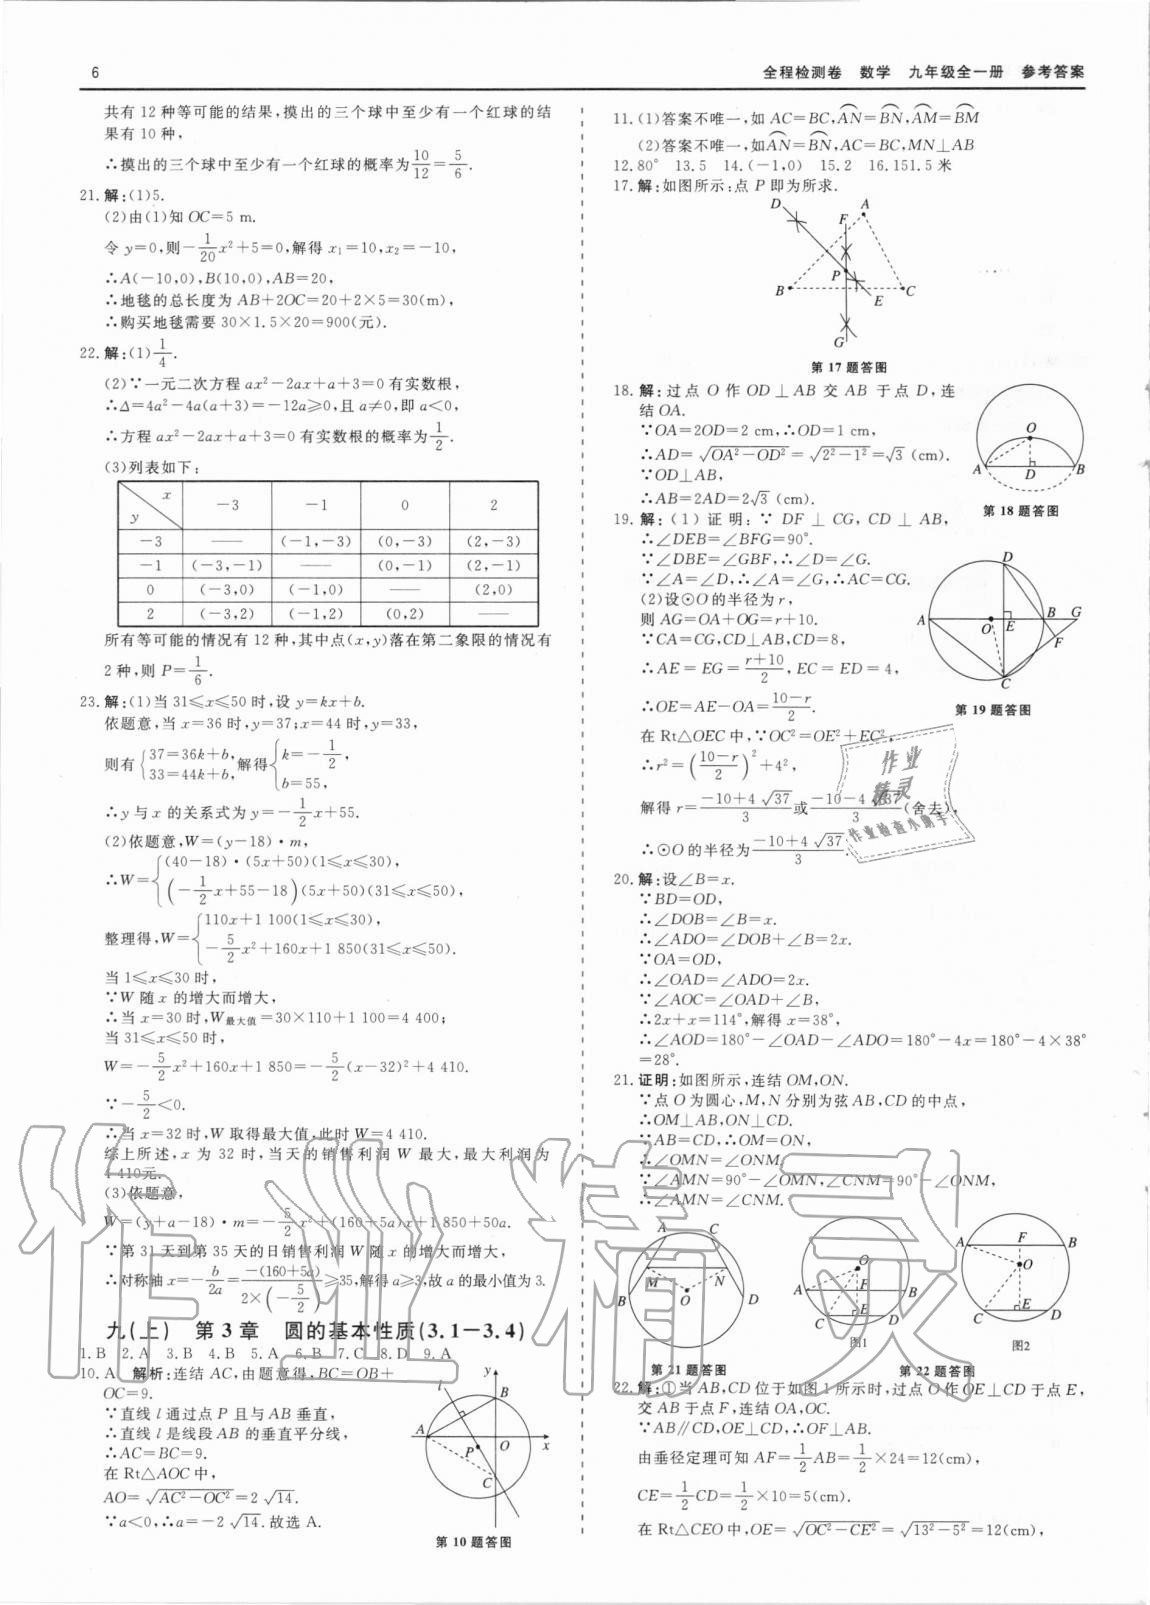 6
全程检测卷 数学 九年级全一册 参考答案
共有 12 种等可能的结果,摸出的三个球中至少有一个红球的结
果有 10 种,
∴摸出的三个球中至少有一个红球的概率为10/12=5/6.
21.解:(1)5.
(2)由(1)知 OC=5 m.
令 y=0,则-1/20x²+5=0,解得 x₁=10,x₂=-10,
∴A(-10,0),B(10,0),AB=20,
∴地毯的总长度为 AB+2OC=20+2×5=30(m),
∴购买地毯需要 30×1.5×20=900(元).
22.解:(1)1/4.
(2)∵一元二次方程 ax²-2ax+a+3=0 有实数根,
∴Δ=4a²-4a(a+3)=-12a≥0,且 a≠0,即 a<0,
∴方程 ax²-2ax+a+3=0 有实数根的概率为1/2.
(3)列表如下:
x y -3 -1 0 2
-3 —— (-1,-3) (0,-3) (2,-3)
-1 (-3,-1) —— (0,-1) (2,-1)
0 (-3,0) (-1,0) —— (2,0)
2 (-3,2) (-1,2) (0,2) ——
所有等可能的情况有 12 种,其中点(x,y)落在第二象限的情况有
2 种,则 P=1/6.
23.解:(1)当 31≤x≤50 时,设 y=kx+b.
依题意,当 x=36 时,y=37;x=44 时,y=33,
则有{37=36k+b, 33=44k+b,解得{k=-1/2, b=55,
∴y 与 x 的关系式为 y=-1/2x+55.
(2)依题意,W=(y-18)·m,
∴W={(40-18)·(5x+50)(1≤x≤30),
(-1/2x+55-18)(5x+50)(31≤x≤50),
整理得,W={110x+1 100(1≤x≤30),
-5/2x²+160x+1 850(31≤x≤50).
当 1≤x≤30 时,
∵W 随 x 的增大而增大,
∴当 x=30 时,W最大值=30×110+1 100=4 400;
当 31≤x≤50 时,
W=-5/2x²+160x+1 850=-5/2(x-32)²+4 410.
∵-5/2<0.
∴当 x=32 时,W 取得最大值,此时 W=4 410.
综上所述,x 为 32 时,当天的销售利润 W 最大,最大利润为
4 410元.
(3)依题意,
W=(y+a-18)·m=-5/2x²+(160+5a)x+1 850+50a.
∵第 31 天到第 35 天的日销售利润 W 随 x 的增大而增大,
∴对称轴 x=-b/2a=-(160+5a)/2×(-5/2)≥35,解得 a≥3,故 a 的最小值为 3.
九(上) 第 3 章 圆的基本性质(3.1-3.4)
1.B 2.A 3.B 4.B 5.A 6.B 7.C 8.D 9.A
10.A 解析:连结 AC,由题意得,BC=OB+
OC=9.
∵直线 l 通过点 P 且与 AB 垂直,
∴直线 l 是线段 AB 的垂直平分线,
∴AC=BC=9.
在 Rt△AOC 中,
AO=√(AC²-OC²)=2√14.
∵a<0,∴a=-2√14.故选 A.
y
l
B
A
P
O
x
C
第 10 题答图
11.(1)答案不唯一,如 AC=BC,A͡N=B͡N,A͡M=B͡M
(2)答案不唯一,如A͡N=B͡N,AC=BC,MN⊥AB
12.80° 13.5 14.(-1,0) 15.2 16.151.5 米
17.解:如图所示:点 P 即为所求.
D
F
A
P
B
E
C
G
第 17 题答图
18.解:过点 O 作 OD⊥AB 交 AB 于点 D,连
结 OA.
∵OA=2OD=2 cm,∴OD=1 cm,
∴AD=√(OA²-OD²)=√(2²-1²)=√3 (cm).
∵OD⊥AB,
∴AB=2AD=2√3 (cm).
O
A
D
B
第 18 题答图
19.解:(1)证明:∵DF⊥CG,CD⊥AB,
∴∠DEB=∠BFG=90°.
∵∠DBE=∠GBF,∴∠D=∠G.
∵∠A=∠D,∴∠A=∠G,∴AC=CG.
(2)设⊙O 的半径为 r,
则 AG=OA+OG=r+10.
∵CA=CG,CD⊥AB,CD=8,
∴AE=EG=(r+10)/2,EC=ED=4,
∴OE=AE-OA=(10-r)/2.
在 Rt△OEC 中,∵OC²=OE²+EC²,
∴r²=((10-r)/2)²+4²,
解得 r=(-10+4√37)/3或(-10-4√37)/3(舍去),
∴⊙O 的半径为(-10+4√37)/3.
D
A
O
E
B
G
F
C
第 19 题答图
作业
精灵
作业检查小助手
20.解:设∠B=x.
∵BD=OD,
∴∠DOB=∠B=x.
∴∠ADO=∠DOB+∠B=2x.
∵OA=OD,
∴∠OAD=∠ADO=2x.
∵∠AOC=∠OAD+∠B,
∴2x+x=114°,解得 x=38°,
∴∠AOD=180°-∠OAD-∠ADO=180°-4x=180°-4×38°
=28°.
21.证明:如图所示,连结 OM,ON.
∵点 O 为圆心,M,N 分别为弦 AB,CD 的中点,
∴OM⊥AB,ON⊥CD.
∵AB=CD,∴OM=ON,
∴∠OMN=∠ONM,
∵∠AMN=90°-∠OMN,∠CNM=90°-∠ONM,
∴∠AMN=∠CNM.
A
C
M
N
B
O
D
第 21 题答图
O
A
F
B
C
E
D
图1
F
A
B
O
C
E
D
图2
第 22 题答图
22.解:①当 AB,CD 位于如图 1 所示时,过点 O 作 OE⊥CD 于点 E,
交 AB 于点 F,连结 OA,OC.
∵AB∥CD,OE⊥CD,∴OF⊥AB.
由垂径定理可知 AF=1/2AB=1/2×24=12(cm),
CE=1/2CD=1/2×10=5(cm).
在 Rt△CEO 中,OE=√(OC²-CE²)=√(13²-5²)=12(cm),
作业精灵